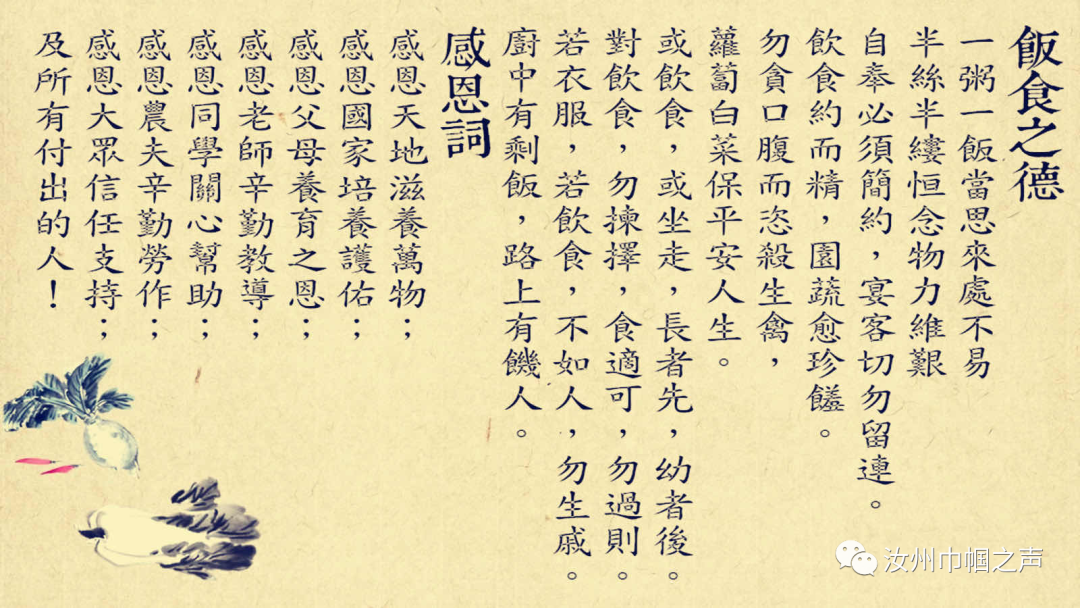 飯食之德
一粥一飯當思來處不易
半絲半縷恒念物力維艱
自奉必須簡約，宴客切勿留連。
飲食約而精，園蔬愈珍饈。
勿貪口腹而恣殺生禽，
蘿蔔白菜保平安人生。
或飲食，或坐走，長者先，幼者後。
對飲食，勿揀擇，食適可，勿過則。
若衣服，若飲食，不如人，勿生戚。
廚中有剩飯，路上有饑人。
感恩詞
感恩天地滋養萬物；
感恩國家培養護佑；
感恩父母養育之恩；
感恩老師辛勤教導；
感恩同學關心幫助；
感恩農夫辛勤勞作；
感恩大眾信任支持；
及所有付出的人！
汝州巾帼之声